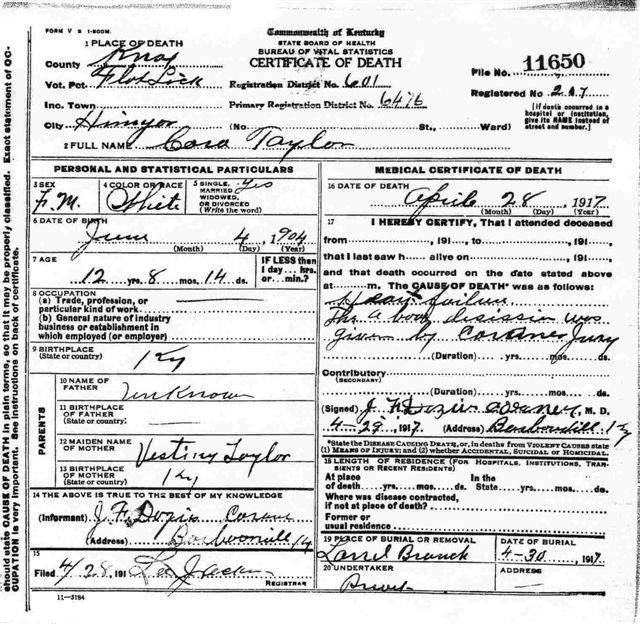 FORM V S 1-500M.
Commonwealth of Kentucky
STATE BOARD OF HEALTH
BUREAU OF VITAL STATISTICS
CERTIFICATE OF DEATH
1 PLACE OF DEATH
County Knox
Vot. Pct. Flat Lick
Inc. Town
City Himyar
Registration District No. 601
Primary Registration District No. 6476
File No. 11650
Registered No. 217
(No. St., Ward)
[If death occurred in a hospital or institution, give its NAME instead of street and number.]
2 FULL NAME Cora Taylor
PERSONAL AND STATISTICAL PARTICULARS
3 SEX F.M.
4 COLOR OR RACE White
5 SINGLE, MARRIED WIDOWED, OR DIVORCED (Write the word) Yes
6 DATE OF BIRTH
June 4, 1904
(Month) (Day) (Year)
7 AGE
12 yrs. 8 mos. 14 ds.
IF LESS than 1 day... hrs. or... min.?
8 OCCUPATION
(a) Trade, profession, or particular kind of work
(b) General nature of industry business or establishment in which employed (or employer)
9 BIRTHPLACE
(State or country) Ky
PARENTS
10 NAME OF FATHER Unknown
11 BIRTHPLACE OF FATHER
(State or country)
12 MAIDEN NAME OF MOTHER Taylor
13 BIRTHPLACE OF MOTHER
(State or country) Ky
14 THE ABOVE IS TRUE TO THE BEST OF MY KNOWLEDGE
(Informant) J. F. Dozier
(Address) Ky
15
Filed 4/28 191
REGISTRAR
11-3184
MEDICAL CERTIFICATE OF DEATH
16 DATE OF DEATH
April 28, 1917
(Month) (Day) (Year)
17 I HEREBY CERTIFY, That I attended deceased
from, 191, to, 191,
that I last saw h alive on, 191,
and that death occurred on the date stated above
at m. The CAUSE OF DEATH* was as follows:
Heart failure
This a boy was
given by Jury
(Duration) yrs. mos. ds.
Contributory
(SECONDARY)
(Duration) yrs. mos. ds.
(Signed) J. F. Dozier M. D.
4-29, 1917. (Address) Ky
*State the DISEASE CAUSING DEATH, or, in deaths from VIOLENT CAUSES state (1) MEANS OF INJURY; and (2) whether ACCIDENTAL, SUICIDAL or HOMICIDAL.
18 LENGTH OF RESIDENCE (FOR HOSPITALS, INSTITUTIONS, TRANSIENTS OR RECENT RESIDENTS)
At place of death yrs. mos. ds. In the State yrs. mos. ds.
Where was disease contracted, if not at place of death?
Former or usual residence
19 PLACE OF BURIAL OR REMOVAL
Branch
DATE OF BURIAL
4-30, 1917
20 UNDERTAKER
ADDRESS
should state CAUSE OF DEATH in plain terms, so that it may be properly classified. Exact statement of OC-
CUPATION is very important. See instructions on back of certificate.